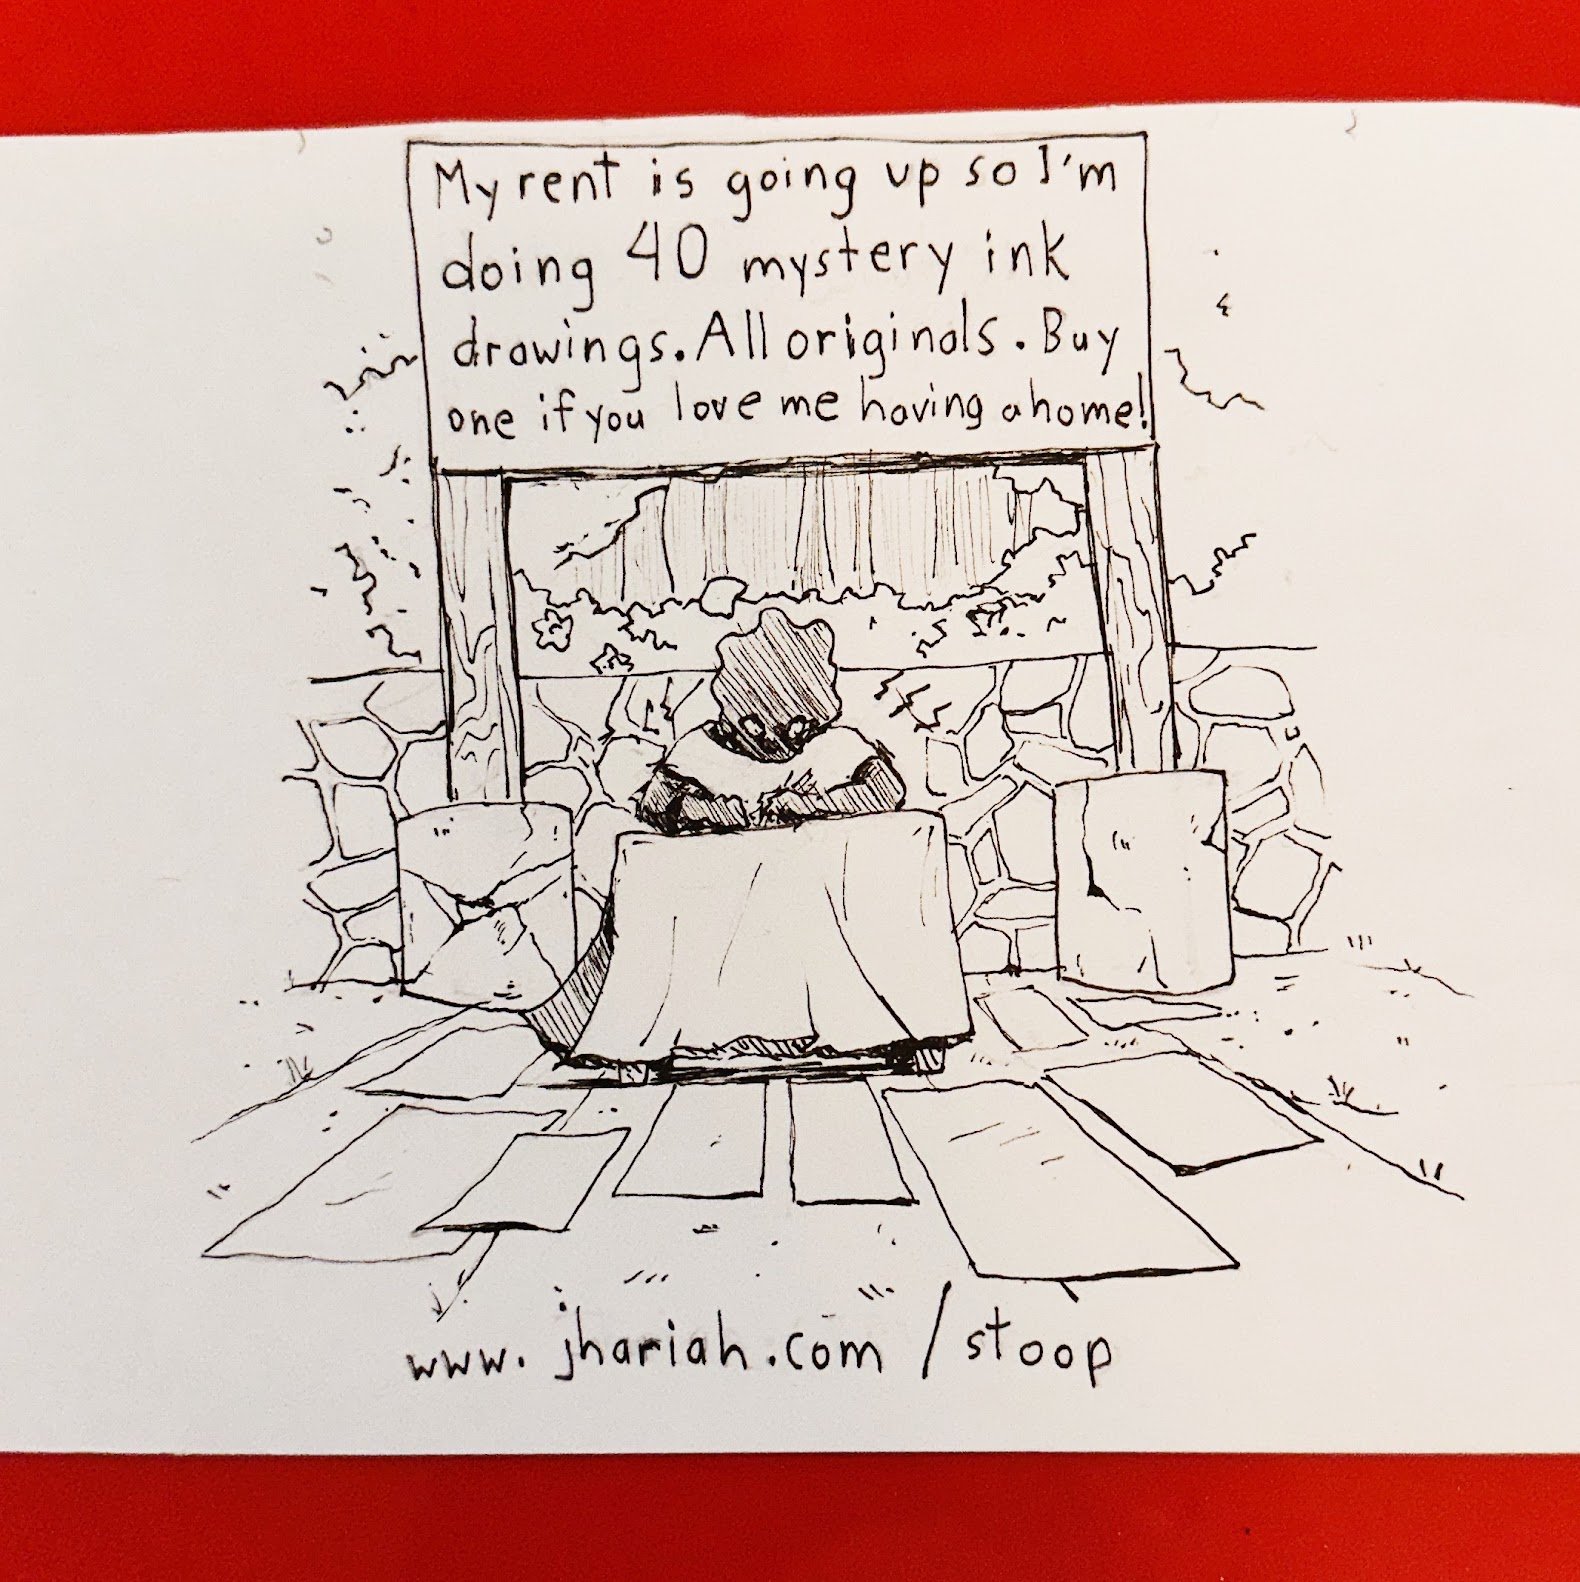 My rent is going up so I'm
doing 40 mystery ink
drawings. All originals. Buy
one if you love me having a home!
www.jhariah.com/stoop